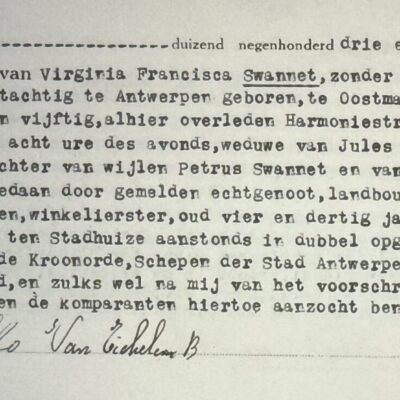 duizend negenhonderd drie e
van Virginia Francisca Swannet,zonder
tachtig te Antwerpen geboren,te Oostma
n vijftig,alhier overleden Harmoniestr
acht ure des avonds,weduwe van Jules
chter van wijlen Petrus Swannet en van
edaan door gemelden echtgenoot,landbou
en,winkelierster,oud vier en dertig ja
ten Stadhuize aanstonds in dubbel opg
de Kroonorde,Schepen der Stad Antwerpe
d,en zulks wel na mij van het voorschr
en de komparanten hiertoe aanzocht ben
Van Eichelen B